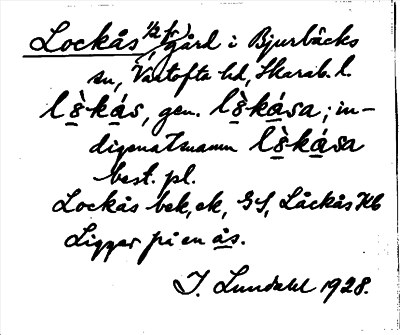 Lockås 1/2 fr, gård i Bjurbäcks
sn, Vartofta hd, Skarab. l.
lo̤̊kås, gen. lo̤̊kåsa; in-
digenatnamn lo̤̊kåsa
best. pl.
Lockås bek, ek, GS, Låckås Hb
Ligger på en ås.
I. Lundahl 1928.